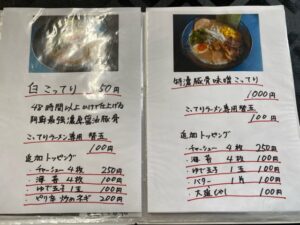 白こってり 50円
48時間以上かけて仕上げる
阿麻最強濃厚醤油豚骨
こってりラーメン専用 替玉
100円
追加トッピング
・チャーシュー 4枚 250円
・海苔 4枚 100円
・ゆで玉子 1玉 100円
・ピリ辛 炒めネギ 200円
特濃豚骨味噌こってり
1000円
こってりラーメン専用 替玉
100円
追加トッピング
・チャーシュー 4枚 250円
・海苔 4枚 100円
・ゆで玉子 1玉 100円
・バター 1片 100円
・大盛もやし 100円